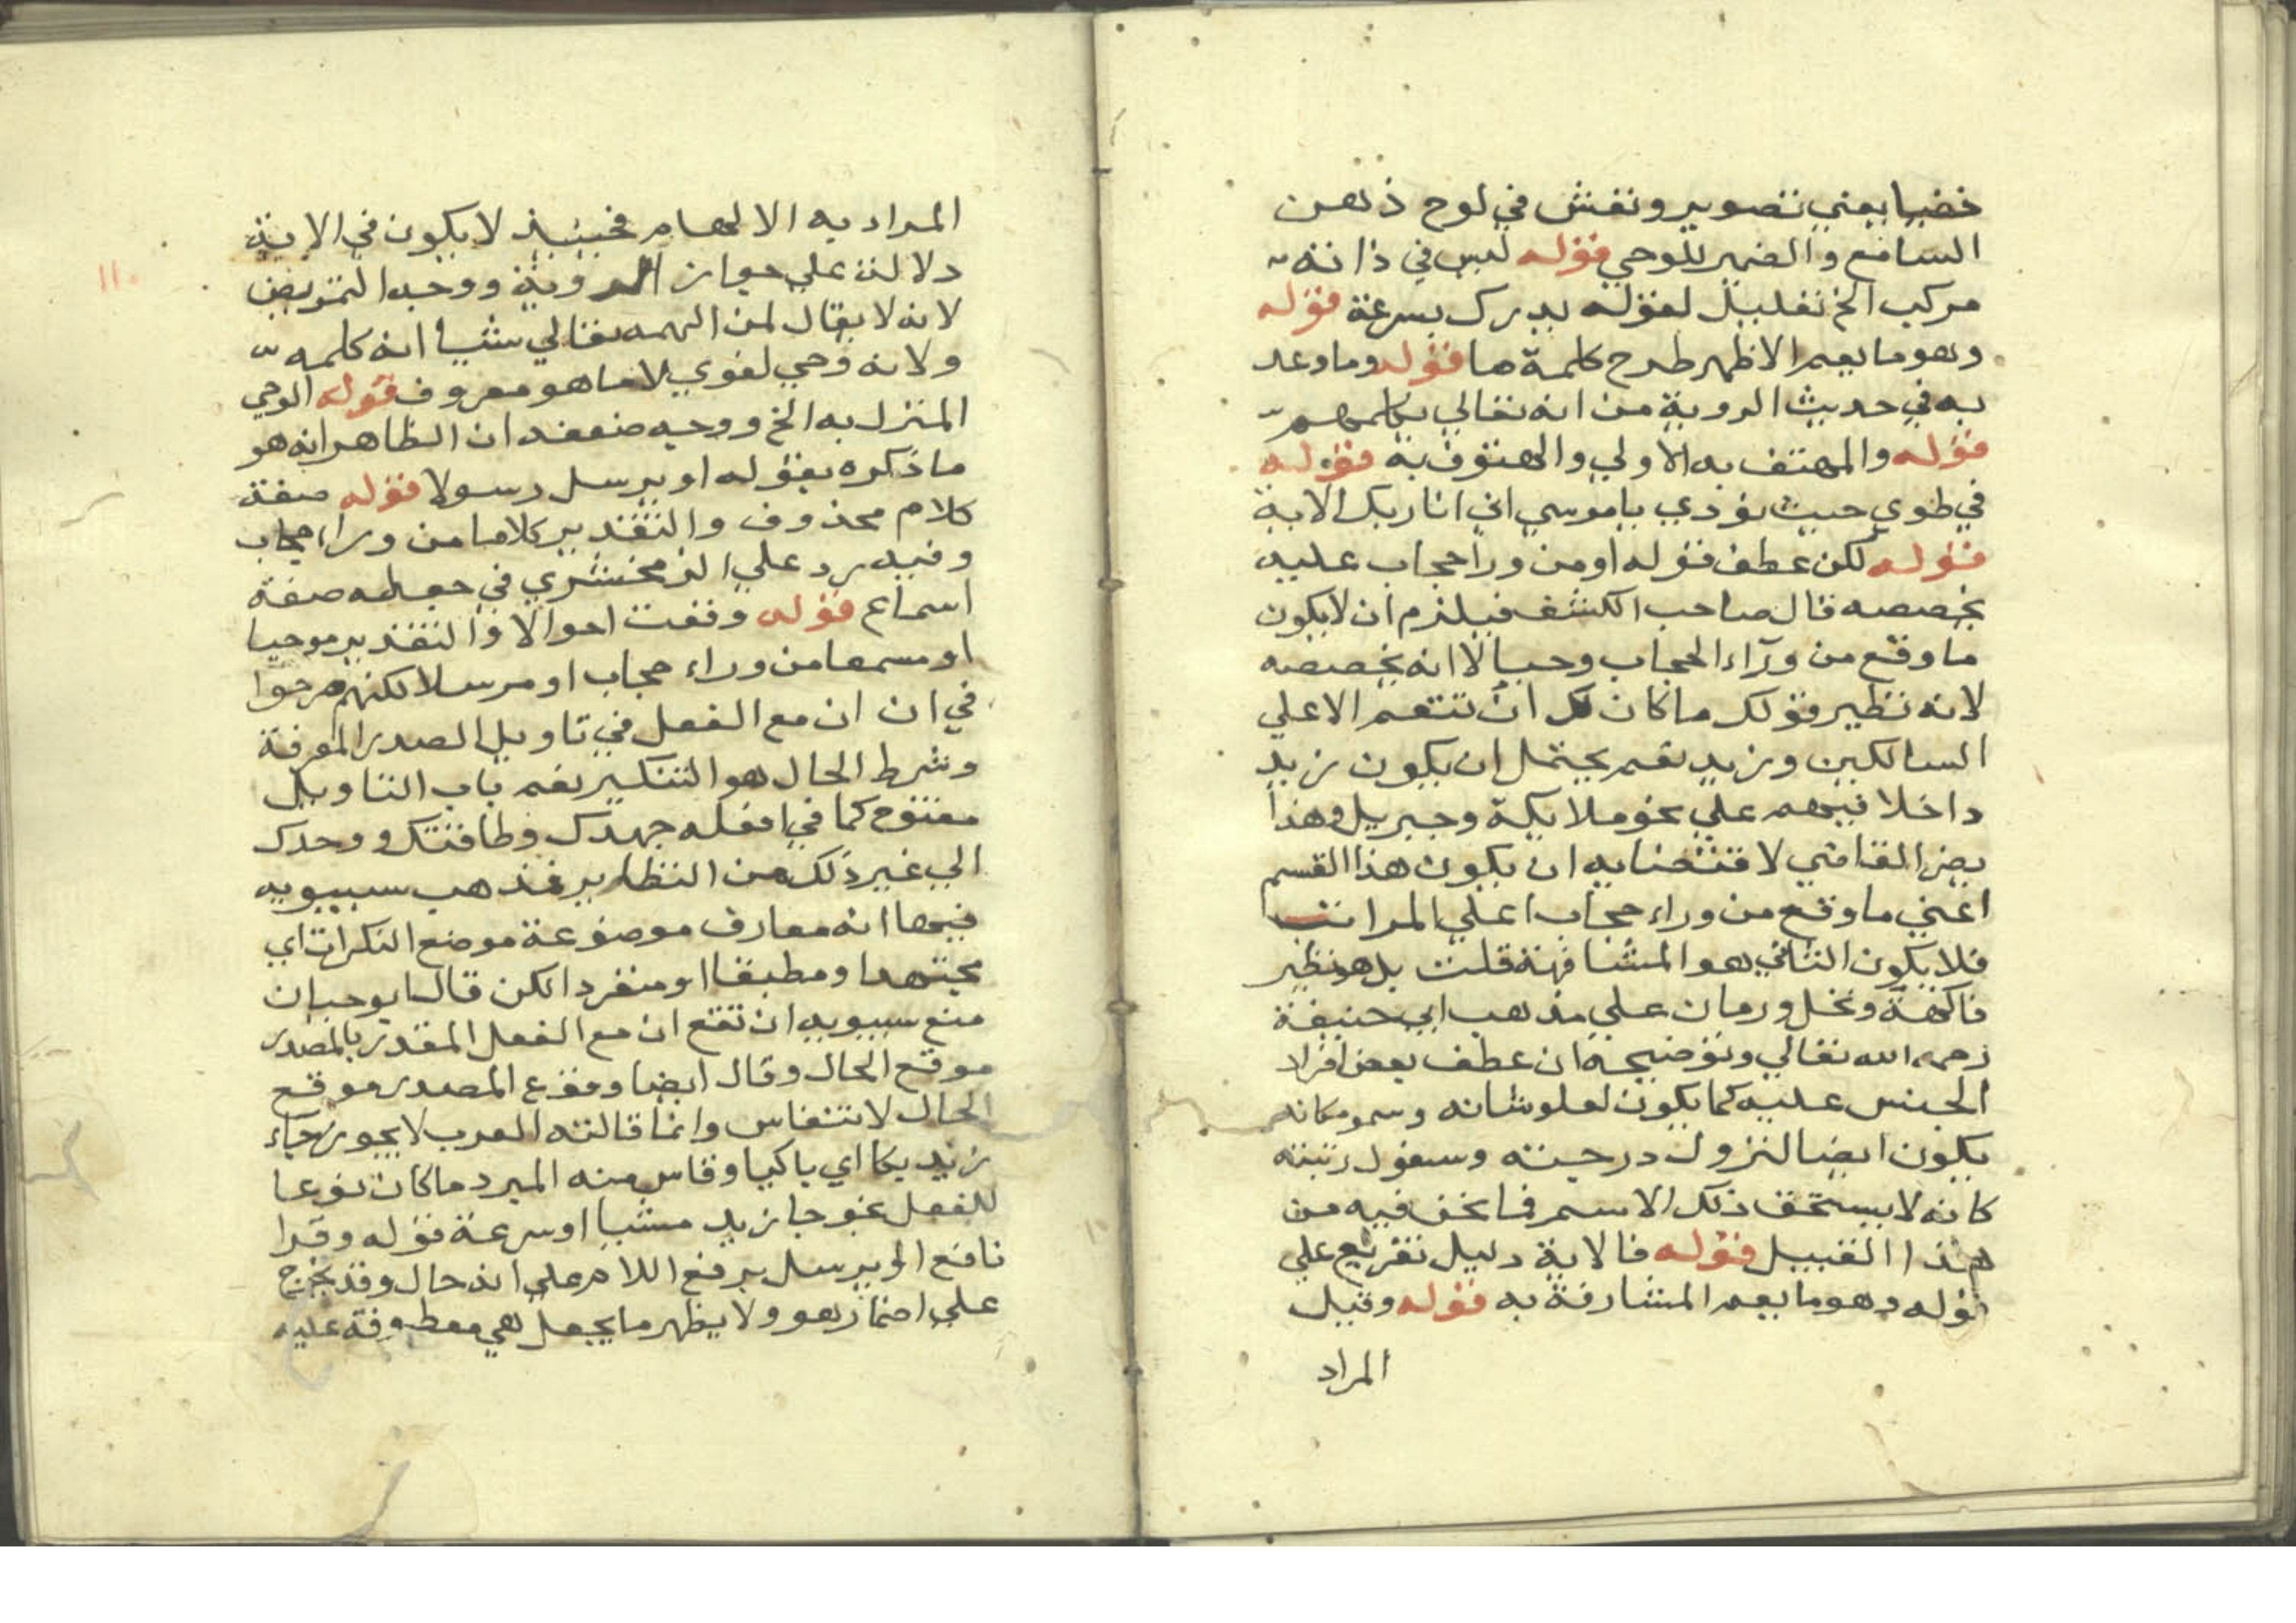 خفيا يعني تصوير ونقش في لوح ذهن
السامع والضمير للوحي قوله ليس في ذاته
مركب الخ تعليل لقوله يدرك بسرعة قوله
وهو ما يعم الاظهر طرح كلمة ما قوله وما وعد
به في حديث الروية من انه تعالى يكلمهم
قوله والمهتف به الاولى والهتوف به قوله
في طوى حيث نودي ياموسي اني انا ربك الاية
قوله لكن عطف قوله او من ورا حجاب عليه
يخصصه قال صاحب الكشف فيلزم ان لا يكون
ما وقع من وراء الحجاب وحيا لا انه يخصصه
لانه نظير قولك ما كان لك ان تنعم الا علي
السالكين وزيد نعم يحتمل ان يكون زيد
داخلا فيهم علي نحو ملايكة وجبريل وهذا
يضر القاضي لاقتضايه ان يكون هذا القسم
اعني ما وقع من وراء حجاب اعلي المراتب
فلا يكون الثاني هو المشافهة قلت بل هو نظير
فاكهة ونخل ورمان علي مذهب ابي حنيفة
رحمه الله تعالي وتوضيحه ان عطف بعض افراد
الجنس عليه كما يكون لعلو شانه وسمو مكانه
يكون ايضا لنزول درجته وسفول رتبته
كانه لا يستحق ذلك الاسم فما نحن فيه من
هذا القبيل قوله فالاية دليل تفريع علي
قوله وهو ما يعم المشافهة به قوله وقيل
المراد
المراد به الالهام فحينيذ لا يكون في الاية
دلالة علي جواز الروية ووجه التمريض
لانه لا يقال لمن الهمه تعالي شيا انه كلمه
ولانه وحي لغوي لا ما هو معروف قوله الوحي
المنزل به الخ ووجه ضعفه ان الظاهر انه هو
ما ذكره بقوله او يرسل رسولا قوله صفة
كلام محذوف والتقدير كلاما من وراء حجاب
وفيه رد علي الزمخشري في جعله صفة
اسماع قوله وقعت احوالا والتقدير موحيا
او مسمعا من وراء حجاب او مرسلا لكنهم صرحوا
في ان ان مع الفعل في تاويل المصدر المعرفة
وشرط الحال هو التنكير نعم باب التاويل
مفتوح كما في افعله جهدك وطاقتك ووحدك
الي غير ذلك من النظاير فمذهب سيبويه
فيها انه معارف موضوعة موضع النكرات اي
مجتهدا ومطيقا او منفردا لكن قال ابو حيان
منع سيبويه ان تقع ان مع الفعل المقدر بالمصدر
موقع الحال وقال ايضا وقوع المصدر موقع
الحال لا تنقاس وانما قالته العرب لا يجوز جاء
زيد بكا اي باكيا وقاس منه المبرد ما كان نوعا
للفعل نحو جا زيد مشيا او سرعة قوله وقرا
نافع او يرسل برفع اللام علي انه حال وقد يخرج
علي اضمار هو ولا يظهر ما يجعل هي معطوفة عليه